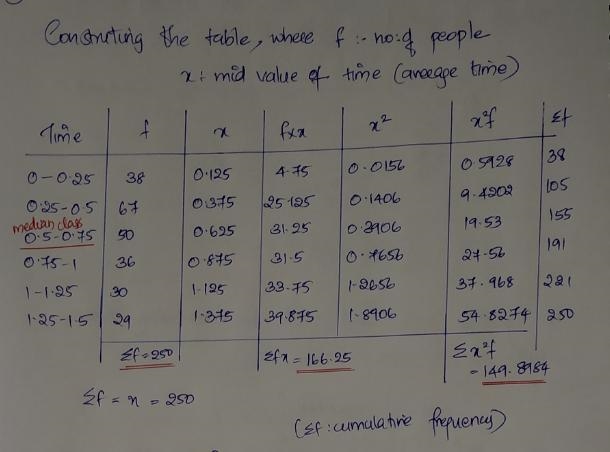 Constructing the table, where f :- no:of people
x : mid value of time (average time)
Time f x fxx x² x²f Σf
0-0.25 38 0.125 4.75 0.0156 0.5928 38
0.25-0.5 67 0.375 25.125 0.1406 9.4202 105
median class
0.5-0.75 50 0.625 31.25 0.3906 19.53 155
0.75-1 36 0.875 31.5 0.7656 27.56 191
1-1.25 30 1.125 33.75 1.2656 37.968 221
1.25-1.5 29 1.375 39.875 1.8906 54.8274 250
Σf=250 Σfx = 166.25 Σx²f
= 149.8984
Σf = n = 250
(Σf : cumulative frequency)